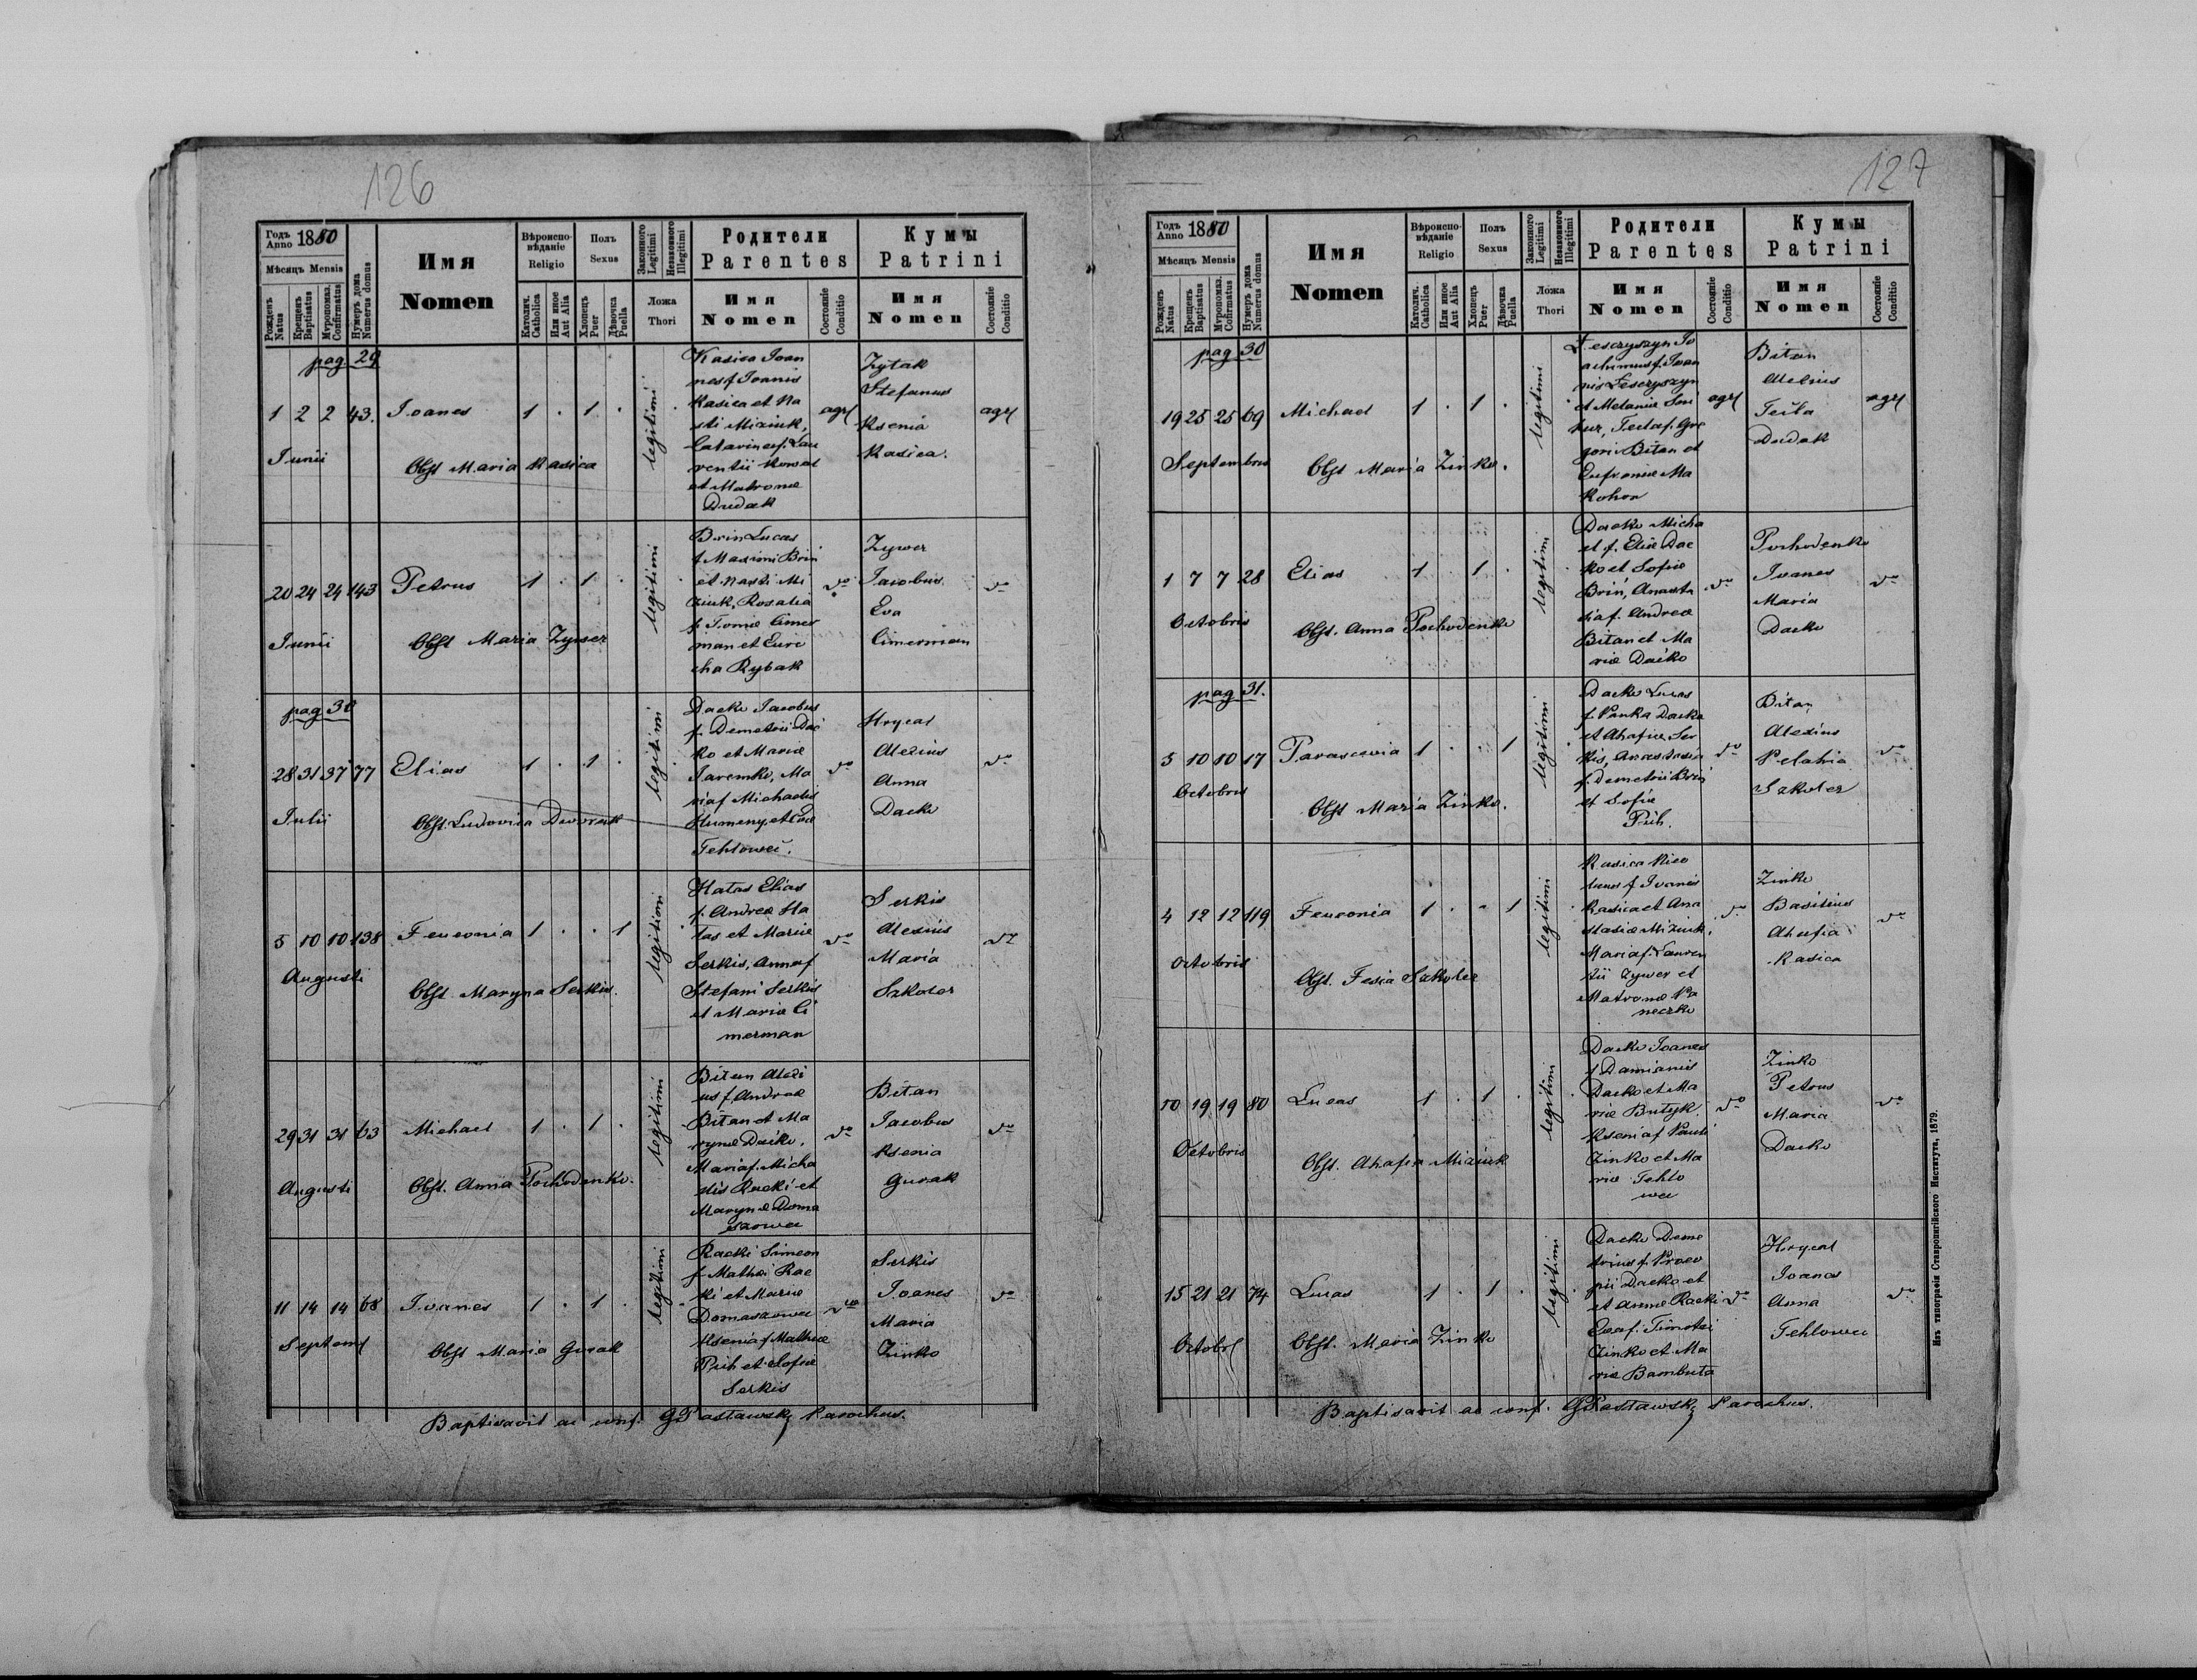 126
Годъ Anno 1880
Мѣсяцъ Mensis
Рожденъ Natus
Крещенъ Baptisatus
Муропомаз. Confirmatus
Нумеръ дома Numerus domus
Имя
Nomen
Вѣроиспо-
вѣданіе
Religio
Католич. Catholica
Или иное Aut Alia
Полъ
Sexus
Хлопецъ Puer
Дѣвочка Puella
Законного Legitimi
Незаконного Illegitimi
Ложа
Thori
Родители
Parentes
Имя
Nomen
Состояніе Conditio
Кумы
Patrini
Имя
Nomen
Состояніе Conditio
pag 29
1 2 2 43. Joanes 1 . 1 .
Junii
Obst Maria Kasica
legitimi
Kasica Joan
nes f Joannis
Kasica et Na
sti Miziuk,
Catarina f. Lau
rentii Kowal
et Matronae
Dudak
agr
Zytak
Stefanus
Ksenia
Kasica.
agr
20 24 24 143 Petrus 1 . 1 .
Junii
Obst Maria Zywer
legitimi
Brin Lucas
f Maximi Brin
et Nasti Mi
ziuk, Rosalia
f Tomae Cimer
man et
cha Rybak
do
Zywer
Jacobus
Eva
Cimerman
do
pag 30
28 31 31 77 Elias 1 . 1 .
Julii
Obst Ludovica Dworak
legitimi
Dacko Jacobus
f. Demetrii Dac
ko et Mariae
Jaremko, Ma
ria f Michaelis
Humeny et
Tehlowci.
do
Hrycal
Alexius
Anna
Dacko
do
5 10 10 138 Feuronia 1 . . 1
Augusti
Obst. Maryna Serkis.
legitimi
Hatas Elias
f. Andreae Ha
tas et Mariae
Serkis, Anna f
Stefani Serkis
et Mariae Ci
merman
do
Serkis
Alexius
Maria
Szkoler
do
29 31 31 63 Michael 1 . 1 .
Augusti
Obst. Anna Pochodenko.
legitimi
Bitan Alexi
us f. Andreae
Bitan et Ma
rynae Dacko,
Maria f. Micha
elis Racki et
Marynae Doma
szowca
do
Bitan
Jacobus
Ksenia
Gurak
do
11 14 14 68 Ivanes 1 . 1 .
Septem
Obst Maria Gurak
legitimi
Racki Simeon
f Mathei Rac
ki et Mariae
Domaszowca
Ksenia f Mathiae
Puh et Sofiae
Serkis
do
Serkis
Joanes
Maria
Zinko
do
Baptisavit ac conf. G Pastawsky Parochus.
127
Годъ Anno 1880
Мѣсяцъ Mensis
Рожденъ Natus
Крещенъ Baptisatus
Муропомаз. Confirmatus
Нумеръ дома Numerus domus
Имя
Nomen
Вѣроиспо-
вѣданіе
Religio
Католич. Catholica
Или иное Aut Alia
Полъ
Sexus
Хлопецъ Puer
Дѣвочка Puella
Законного Legitimi
Незаконного Illegitimi
Ложа
Thori
Родители
Parentes
Имя
Nomen
Состояніе Conditio
Кумы
Patrini
Имя
Nomen
Состояніе Conditio
pag 30
19 25 25 69 Michael 1 . 1 .
Septembris
Obst Maria Zinko.
legitimi
Leszczyszyn Jo
achimus f. Joan
nis Leszczyszyn
et Melaniae
Tecla f. Gre
gori Bitan et
Eufroniae Ma
kohon
agr
Bitan
Alexius
Tecla
Dudak
agr
1 7 7 28 Elias 1 . 1 .
Octobris
Obst. Anna Pochodenko
legitimi
Dacko Micha
el f. Eliae Dac
ko et Sofiae
Brin, Anasta
sia f. Andreae
Bitan et Ma
riae Dacko
do
Pochodenko
Ivanes
Maria
Dacko
do
pag 31.
5 10 10 17 Parascevia 1 . . 1
Octobris
Obst Maria Zinko.
legitimi
Dacko Lucas
f. Panka Dacko
et Ahafiae Ser
kis, Anastasia
f. Demetrii Brin
et Sofiae
Puh.
do
Bitan
Alexius
Pelahia
Szkoler
do
4 12 12 119 Feuronia 1 . . 1
Octobris
Obst. Fesia Szkoler
legitimi
Kasica Nico
laus f Ivanis
Kasica et Ana
stasiae Miziuk,
Maria f. Lauren
tii Zywer et
Matronae Pa
neczko
do
Zinko
Basilius
Ahafia
Kasica
do
10 19 19 80 Lucas 1 . 1 .
Octobris
Obst. Ahafia Miziuk
legitimi
Dacko Joanes
f Damianis
Dacko et Ma
riae Butyk.
Ksenia f Pauli
Zinko et Ma
riae Tehlo
wca
do
Zinko
Petrus
Maria
Dacko
do
15 21 21 74 Lucas 1 . 1 .
Octobr
Obst. Maria Zinko
legitimi
Dacko Deme
trius f. Proco
pii Dacko et
et Annae Racki
Eva f. Timotei
Zinko et Ma
riae Bambuta
do
Hrycal
Joanes
Anna
Tehlowca
do
Baptisavit ac conf. G Pastawsky Parochus.
Изъ типографіи Ставропигійского Института, 1879.